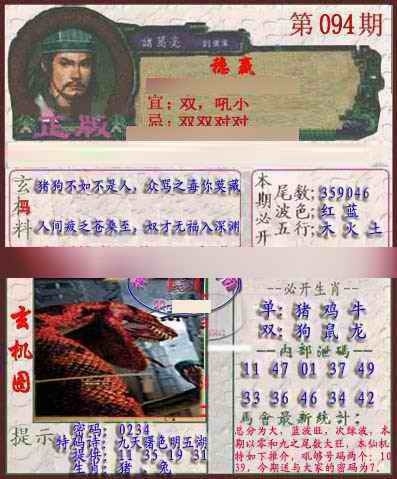 第094期
諸葛亮
德赢
宜：双，吼小
忌：双双对对
正版
玄机料
猪狗不如不是人，众骂之毒你莫藏
人间疲之苍桑至，奴才无福入深渊
本期必开
尾数：359046
波色：红 蓝
五行：木 火 土
必开生肖
单：猪 鸡 牛
双：狗 鼠 龙
内部泄码
11 47 01 37 49
33 36 46 34 42
玄机图
提示
密码：0234
特码诗：九天曙色明五湖
提供：11 35 19 31
生肖：猪，兔
馬會最新统计：
总分为大，蓝波旺，次绿波，本
期以零和九之尾数大旺，本仙机
特如下推介，吼够号码两个：10
39，今期送与大家的密码为7．